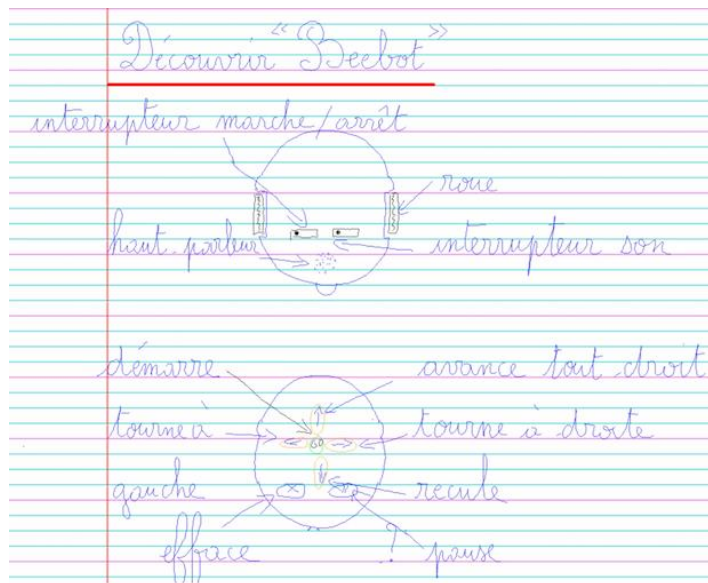 Découvrir "Beebot"
interrupteur marche/arrêt
roue
haut-parleur interrupteur son
démarre avance tout droit
tourne à tourne à droite
GO
gauche recule
efface ? pause